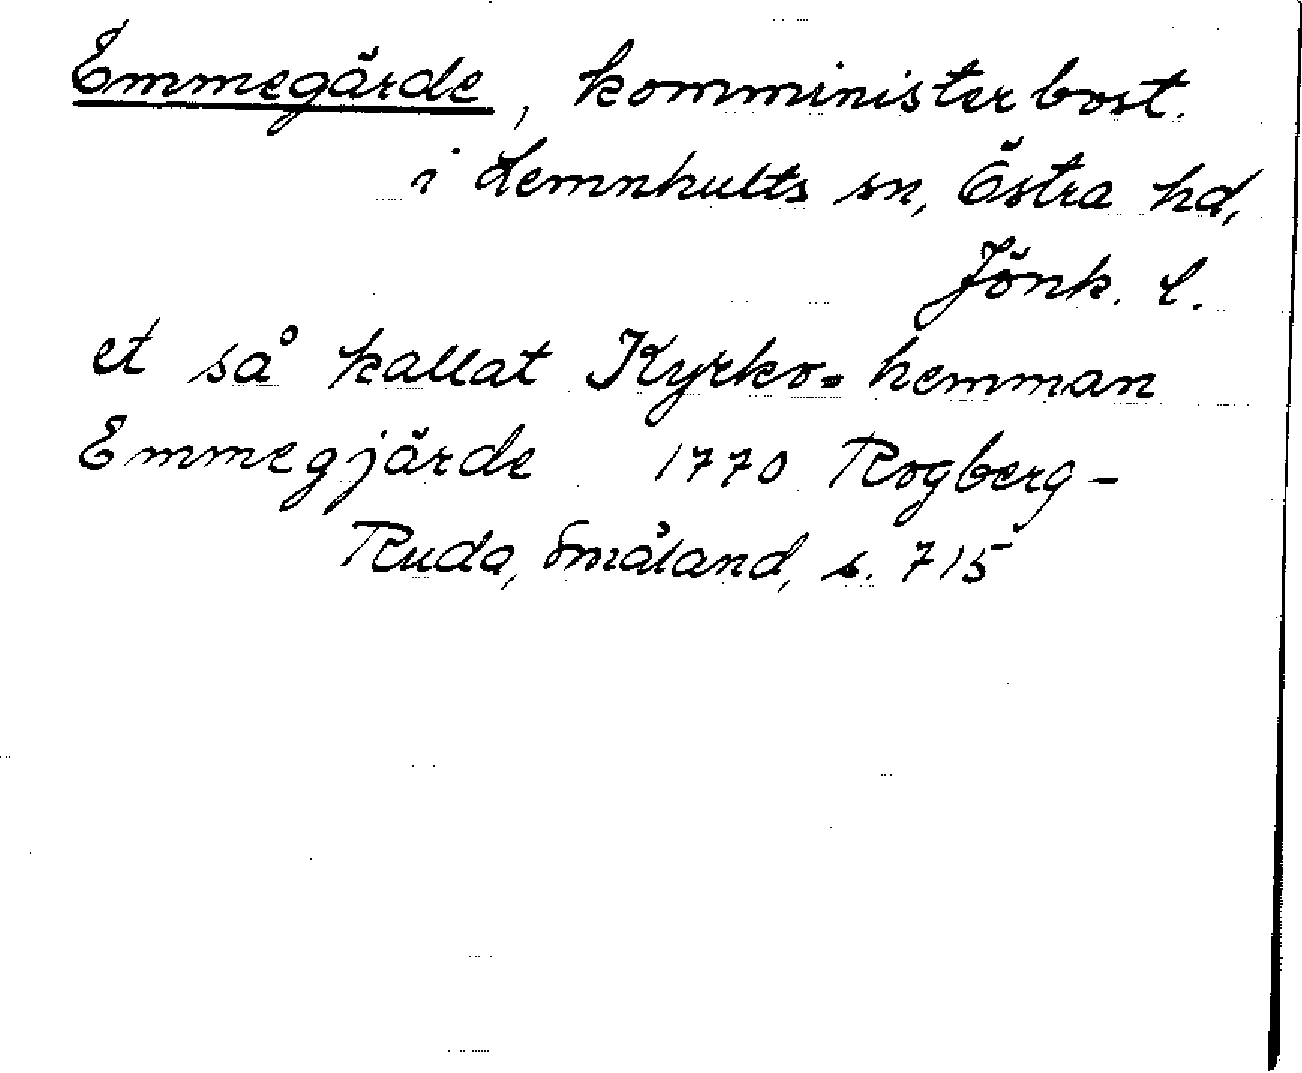 Emmegärde, komministerbost.
i Lemnhults sn, Östra hd,
Jönk. l.
et så kallat Kyrko= hemman
Emmegjärde 1770 Rogberg-
Ruda, Småland, s. 715